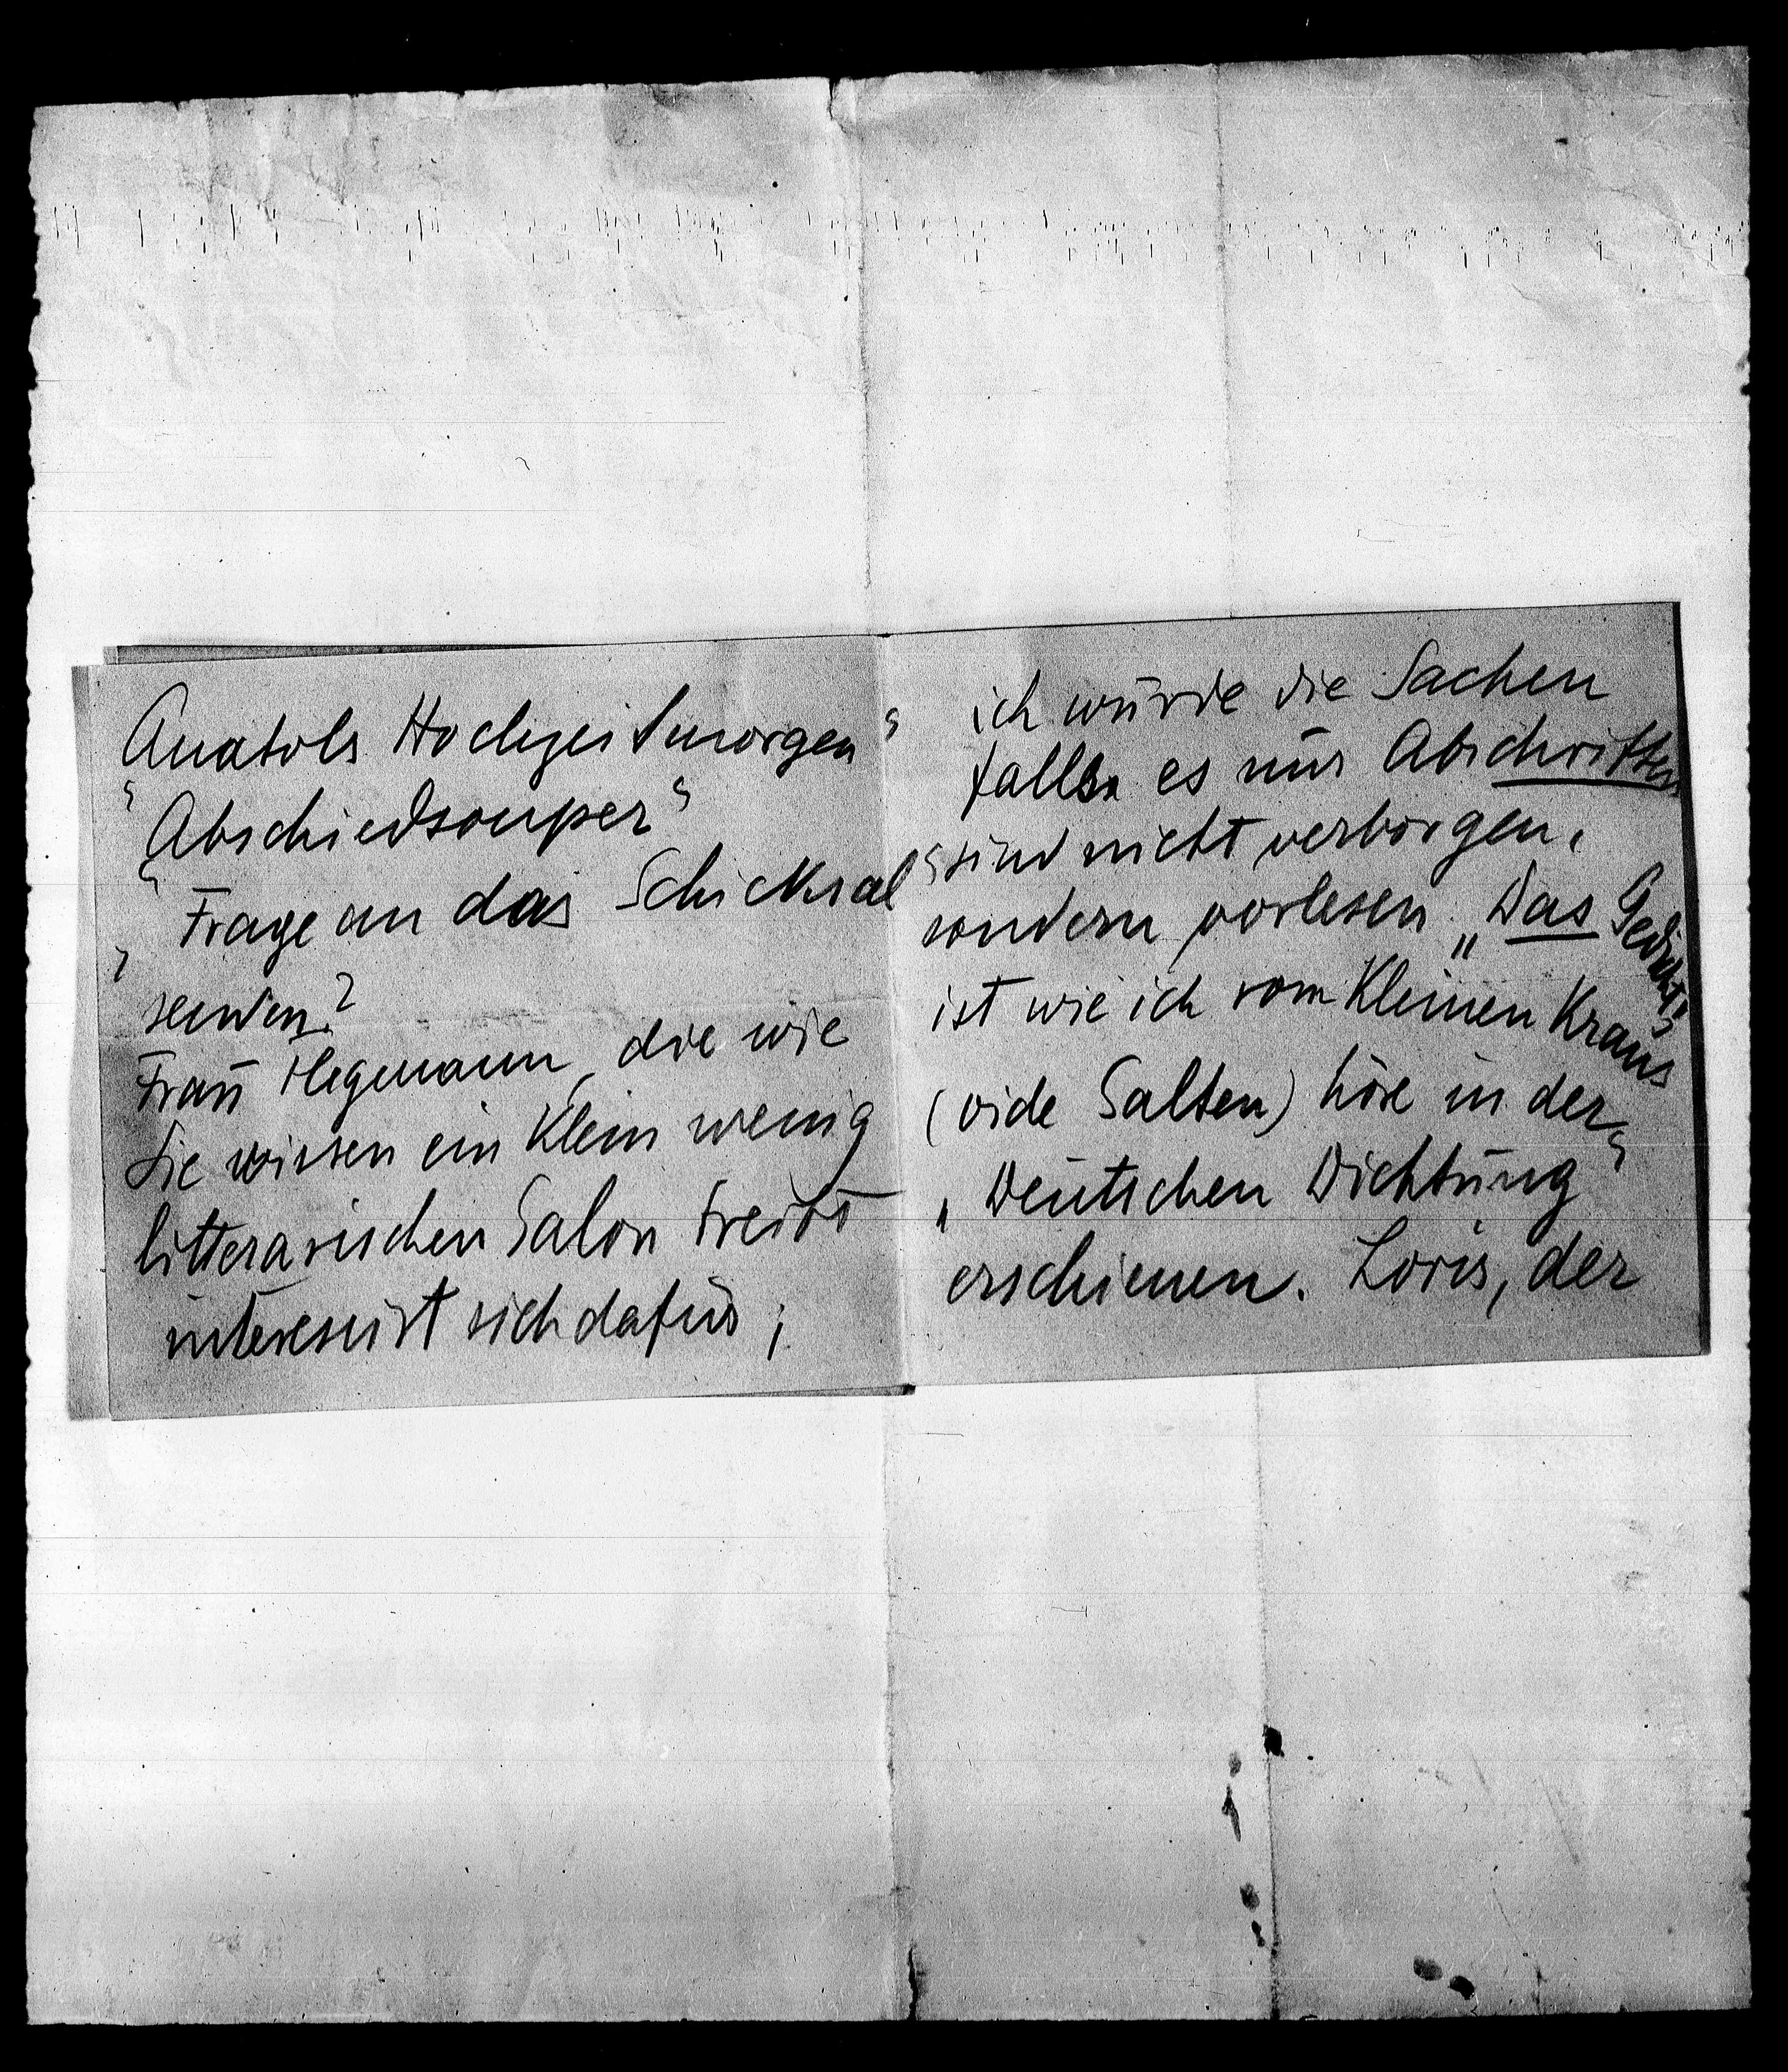 Anatols Hochzeitsmorgen“
„Abschiedsouper“
„Frage an das Schicksal“
senden?
Frau Hegmann, die wie
Sie wissen ein klein wenig
litterarischen Salon treibt
interessirt sich dafür;
ich würde die Sachen
falls es nur Abschriften
sind nicht verborgen,
sondern vorlesen. „Das Gedicht“
ist wie ich vom kleinen Kraus
(vide Salten) höre in der
„Deutschen Dichtung“
erschienen. Loris, der